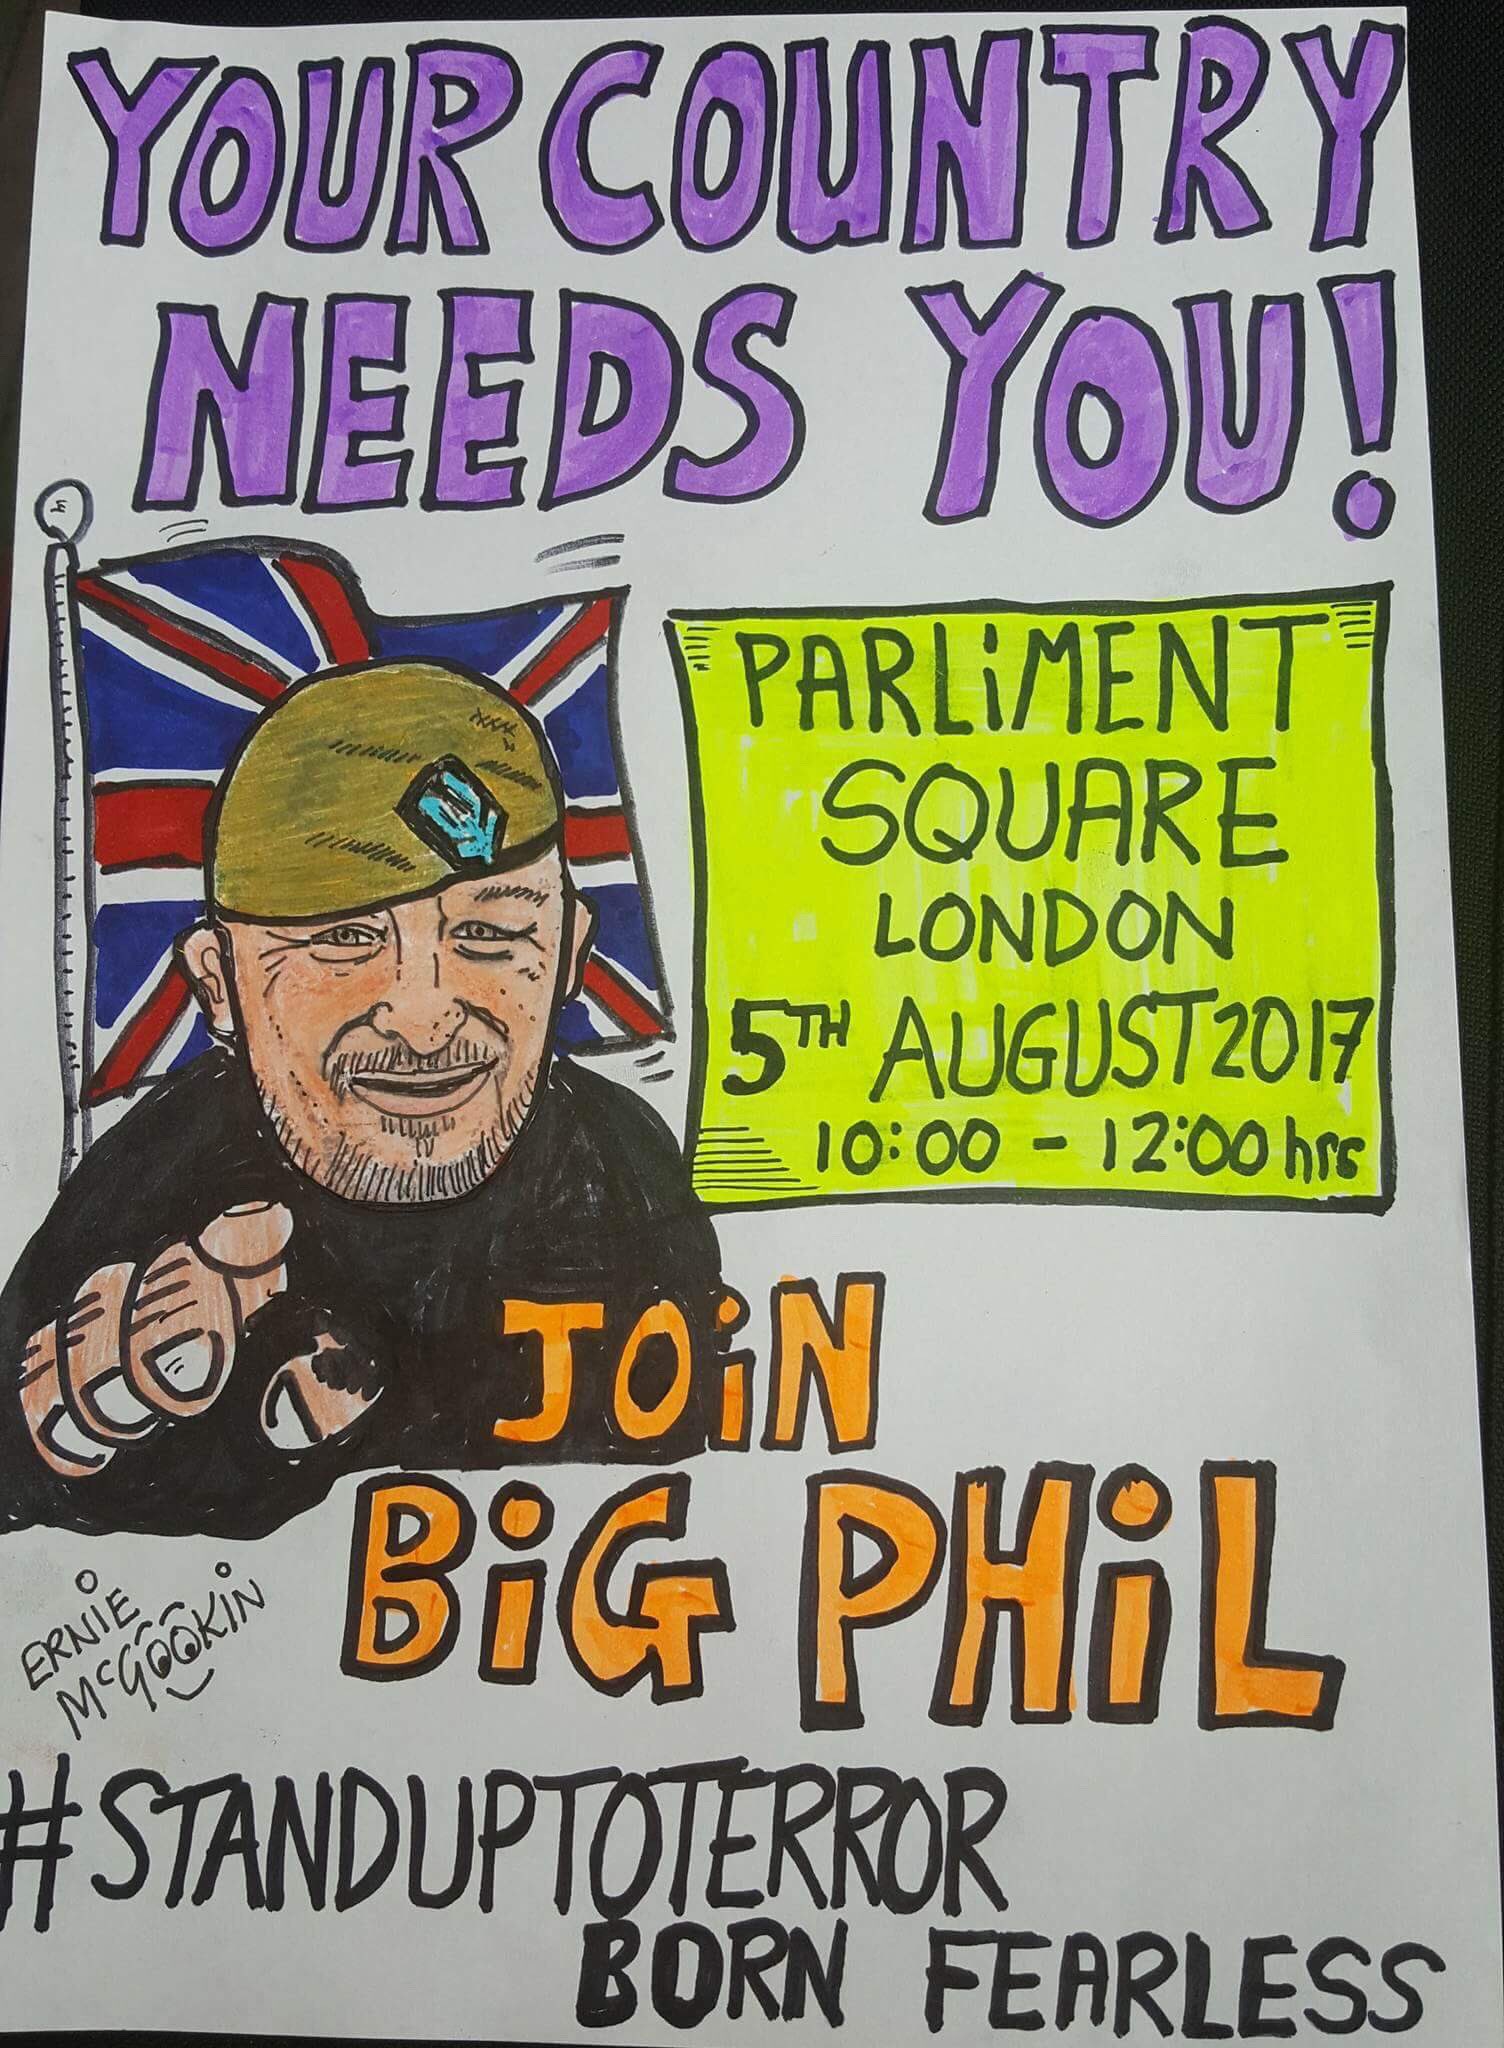 YOUR COUNTRY
NEEDS YOU!
PARLiMENT
SQUARE
LONDON
5TH AUGUST 2017
10:00 - 12:00 hrs
JOiN
BiG PHiL
ERNIE
McGOOKIN
#STANDUPTOTERROR
BORN FEARLESS